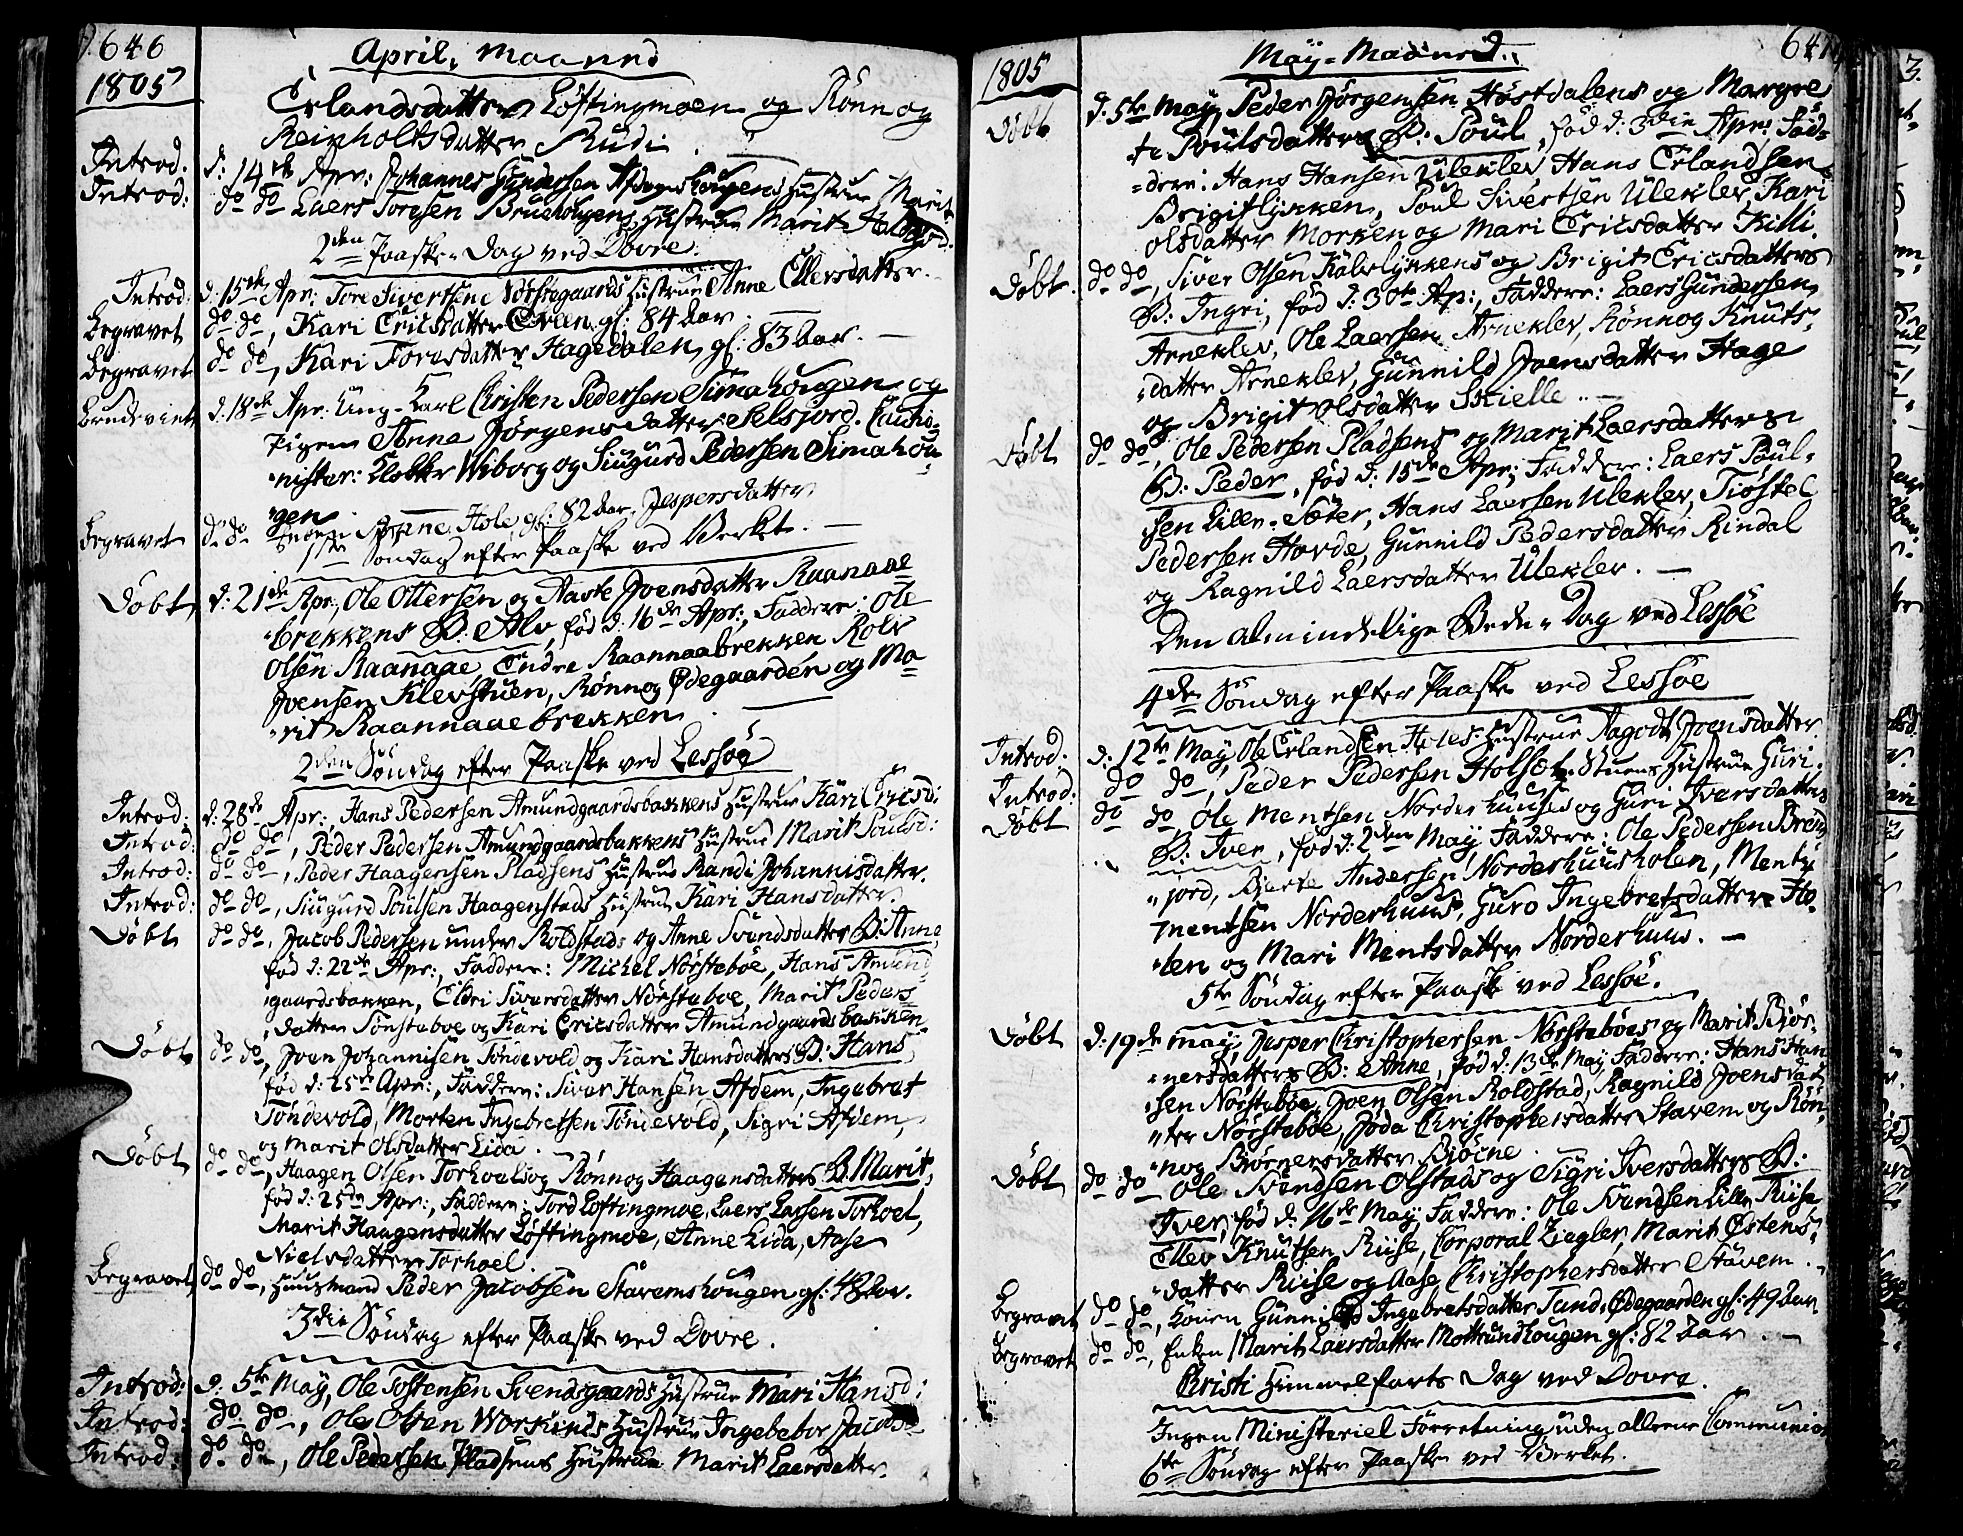 646
April, Maaned
1805
Erlandsdatter Løftingmoen og Rønnog
Reinholtsdatter Rudi.
Introd: d: 14de Apr: Johannes Gundersen Afdemshougens Hustrue Marit
Introd: do do Laers Toresen Bruehougens Hustrue Marit
2den Paaske-Dag ved Dovre.
Introd: d: 15de Apr: Tore Sivertsens Hustrue Anne Ellersdatter.
Begravet do do, Kari Ericsdatter Eveen gl: 84 Aar.
Begravet do do, Kari Toresdatter Hagedalen, gl: 83 Aar.
Brudeviet d: 18de Apr: Ung-Karl Christen Pedersen Simahougen og
Pigen Anne Jørgensdatter Selsjord. Cautio-
nister: Klokker Wiborg og Siugurd Pedersen Simahou-
gen.
Begravet do do Anne Hole, gl: 82 Aar, Jespersdatter
1ste Søndag efter Paaske ved Verket.
Døbt d: 21de Apr, Ole Ottersen og Aaste Joensdatter Raanaae
brekkens B: Alv, fød d: 16de Apr:, Faddere: Ole
Olsen Raanaae, Endre Raannaabrekken Rolv
Joensen Klevstuen, Rønnog Ødegaarden og Ma-
rit Raannaaebrekken.
2den Søndag efter Paaske ved Lessøe
Introd: d: 28de Apr:, Hans Pedersen Amundgaardsbakkens Hustrue Kari Ericsd:
Introd: do do, Peder Pedersen Amundgaardsbakkens Hustrue Marit Poulsd:
Introd: do do, Peder Haagensen Pladsens Hustrue Randi Johannisdatter.
Introd: do do, Siugurd Poulsen Haagenstads Hustrue Kari Hansdatter.
Døbt do do, Jacob Pedersen under Roldstad og Anne Svendsdatters B: Anne,
fød d: 22de Apr:, Faddere: Michel Nørstebøe, Hans Amund-
gaardsbakken, Eldri Siversdatter Nørstebøe, Marit Peders-
datter Sønstebøe og Kari Ericsdatter Amundgaardsbakken
Døbt do do, Joen Johannisen Tøndevold og Kari Hansdatters B: Hans
fød d: 25de Apr:, Faddere: Siver Hansen Afdem, Ingebret
Tøndevold, Morten Ingebretsen Tøndevold, Sigri Afdem,
og Marit Olsdatter Lida.
Døbt do do, Haagen Olsen Torhoels og Rønnog Haagensdatters B. Marit,
fød d: 25de Apr:, Faddere: Tord Løftingmoe, Laers Larsen Torhoel,
Marit Haagensdatter Løftingmoe, Anne Lida, Aase
Nielsdatter Torhoel.
Begravet do do, Huusmand Peder Jacobsen Stavemshougen gl: 48 Aar.
3die Søndag efter Paaske ved Dovre.
Introd: d: 5te May, Ole Tostensen Svendsgaards Hustrue Mari Hansd:
Introd: do do, Ole Olsen Hustrue Ingebor
Introd: do do, Ole Pedersen Pladsens Hustrue Marit Laersdatter.
647
May-Maaned.
1805
Døbt d: 5te May, Peder Jørgensen Høstdalens og Margre
te Poulsdatters B: Poul, fød d: 3die Apr: Fad-
dere: Hans Hansen Uleklev Hans Erlandsen
Brigitlykken, Poul Sivertsen Uleklev, Kari
Olsdatter Morken og Mari Ericsdatter Killi.
Døbt do do, Siver Olsen Kalvelykkens og Brigit Ericsdatters
B: Ingri, fød d: 30te Ap:, Faddere: Laers Gundersen
Arneklev, Ole Laersen Arneklev, Rønnog Knuts-
datter Arneklev, Gunnild Joensdatter Hage
og Brigit Olsdatter Skielle.
Døbt do do, Ole Pedersen Pladsens og Marit Laersdatters
B: Peder, fød d: 15de Apr; Faddere: Laers Poul-
sen Lille-Sæter, Hans Laersen Uleklev, Tiøstel
Pedersen Horde, Gunnild Pedersdatter Rindal
og Ragnild Laersdatter Uleklev.
Den almindelige Bede-Dag ved Lessøe
4de Søndag efter Paaske ved Lessøe
Introd: d: 12te May, Ole Erlandsen Holes Hustrue Aagodt Joensdatter
Introd: do do, Peder Pedersen Hustrue Guri.
Døbt do do Ole Mentsen Norderhuuses og Guri Iversdatters
B: Iver, fød d: 2den May, Faddere: Ole Pedersen
jord, Bierte Andersen Norderhuusholen, Mentz
Mentsen Norderhuus, Guro Ingebretsdatter Ho-
len og Mari Mentsdatter Norderhuus.
5te Søndag efter Paaske ved Lessøe.
Døbt d: 19de May, Jesper Christophersen Nørstebøes og Marit Biør-
nersdatters B: Anne, fød d: 13de May, Faddere: Hans Han
sen Nørstebøe, Joen Olsen Roldstad, Ragnild Joensdat
ter Nørstebøe, Joda Christophersdatter Stavem og Røn-
nog Biørnersdatter Biøcne.
Døbt do do Ole Svendsen Olstads og Sigri Iversdatters B:
Iver, fød d: 16de May, Faddere: Ole Svendsen Lille Riise
Ellev Knutsen Riise, Corporal Ziegler, Marit Østens-
datter Riise og Aase Christophersdatter Stavem.
Begravet do do, Konen Gunnild Ingebretsdatter Tand-Ødegaarden gl: 49 Aar
Begravet do do, Enken Marit Laersdatter Mottundhougen gl: 82 Aar.
Christi Himmelfarts Dag ved Dovre.
Ingen Ministeriel Forretning uden allene Communion
6te Søndag efter Paaske ved Verket.